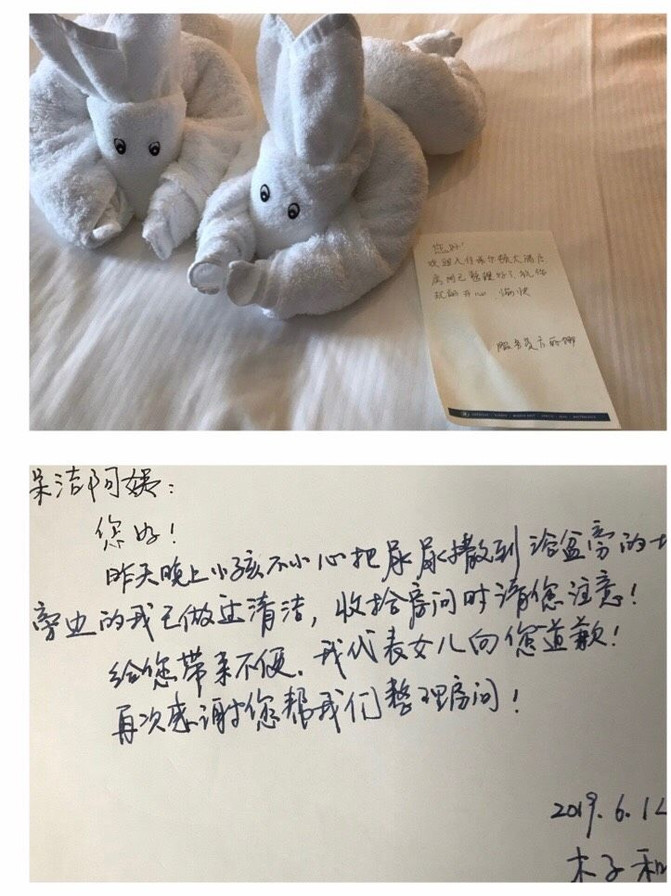 您好!
欢迎入住希尔顿大酒店
房间已整理好了,祝你
玩的开心 愉快
服务员
保洁阿姨:
您好!
昨天晚上小孩不小心把尿尿撒到浴盆旁的
旁边的我已做过清洁,收拾房间时请您注意!
给您带来不便,我代表女儿向您道歉!
再次感谢您帮我们整理房间!
2019.6.12
木子和